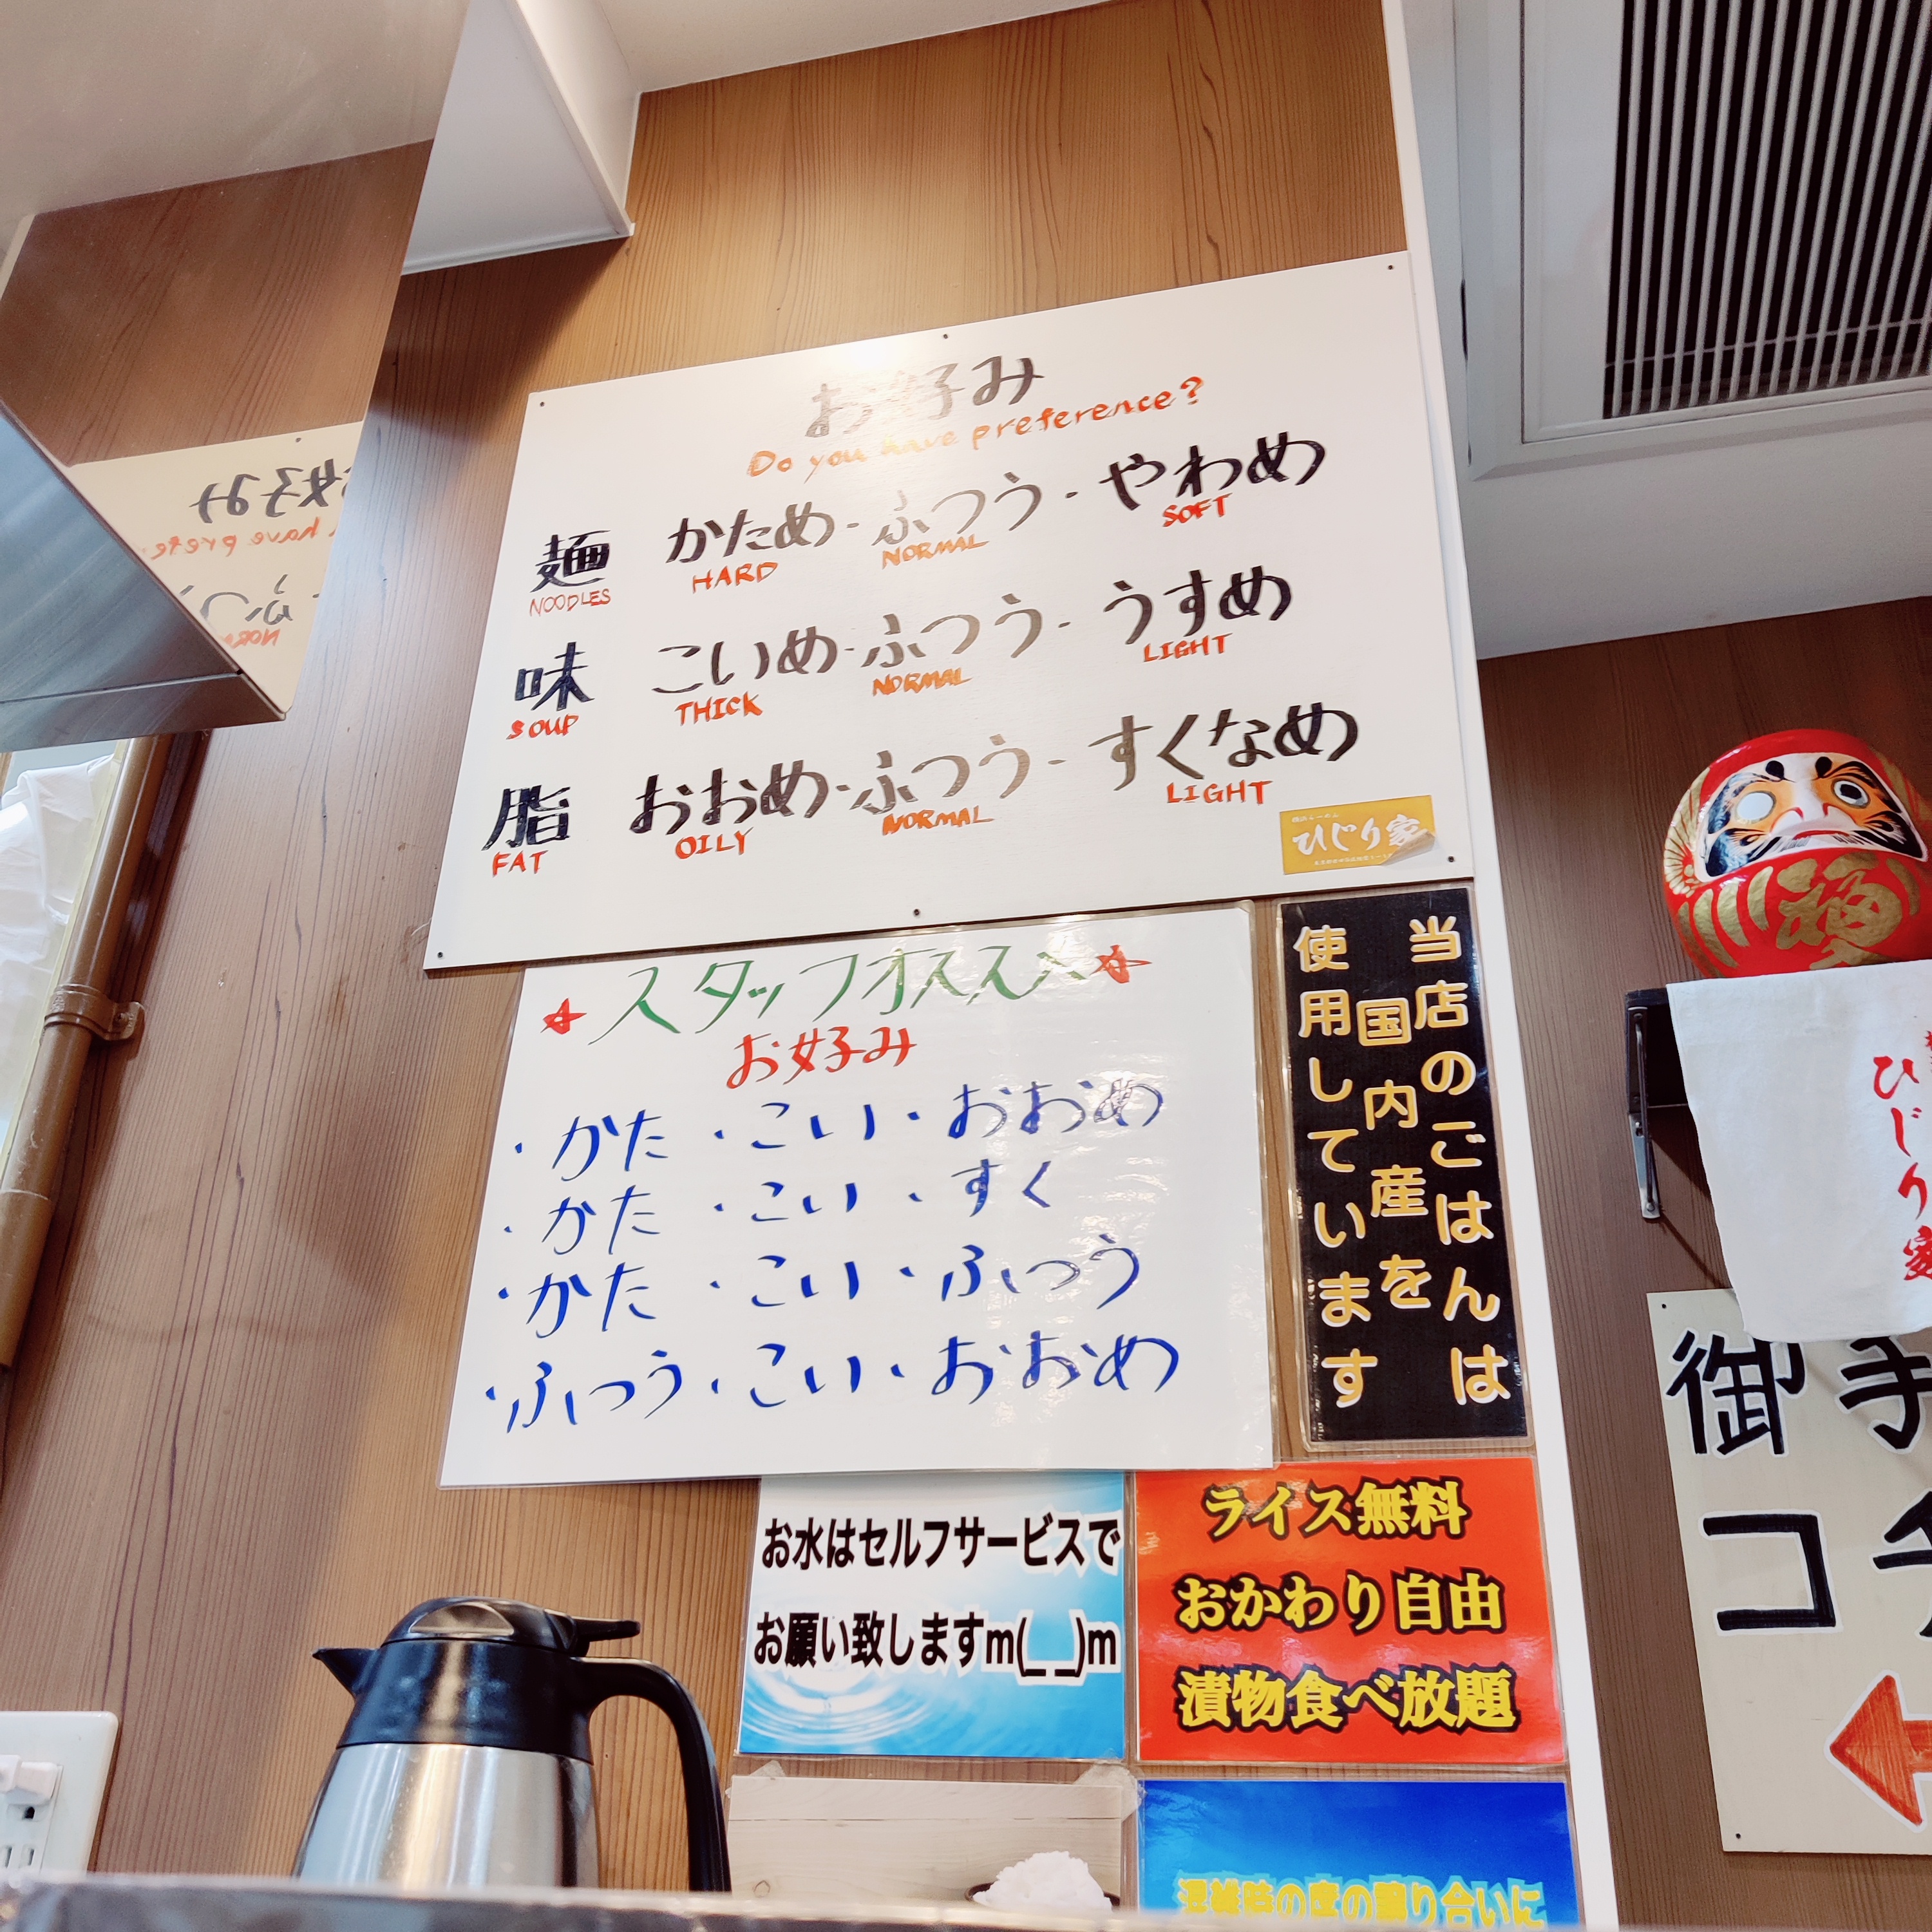 お好み
Do you have preference?
麺 かため-ふつう-やわめ
NOODLES HARD NORMAL SOFT
味 こいめ-ふつう-うすめ
SOUP THICK NORMAL LIGHT
脂 おおめ-ふつう-すくなめ
FAT OILY NORMAL LIGHT
ひじり家
スタッフオススメ
お好み
・かた・こい・おおめ
・かた・こい・すく
・かた・こい・ふつう
・ふつう・こい・おおめ
当店のごはんは
国内産を
使用しています
お水はセルフサービスで
お願い致しますm(_ _)m
ライス無料
おかわり自由
漬物食べ放題
混雑時の席の譲り合いに
福
ひじり家
御手
コチ